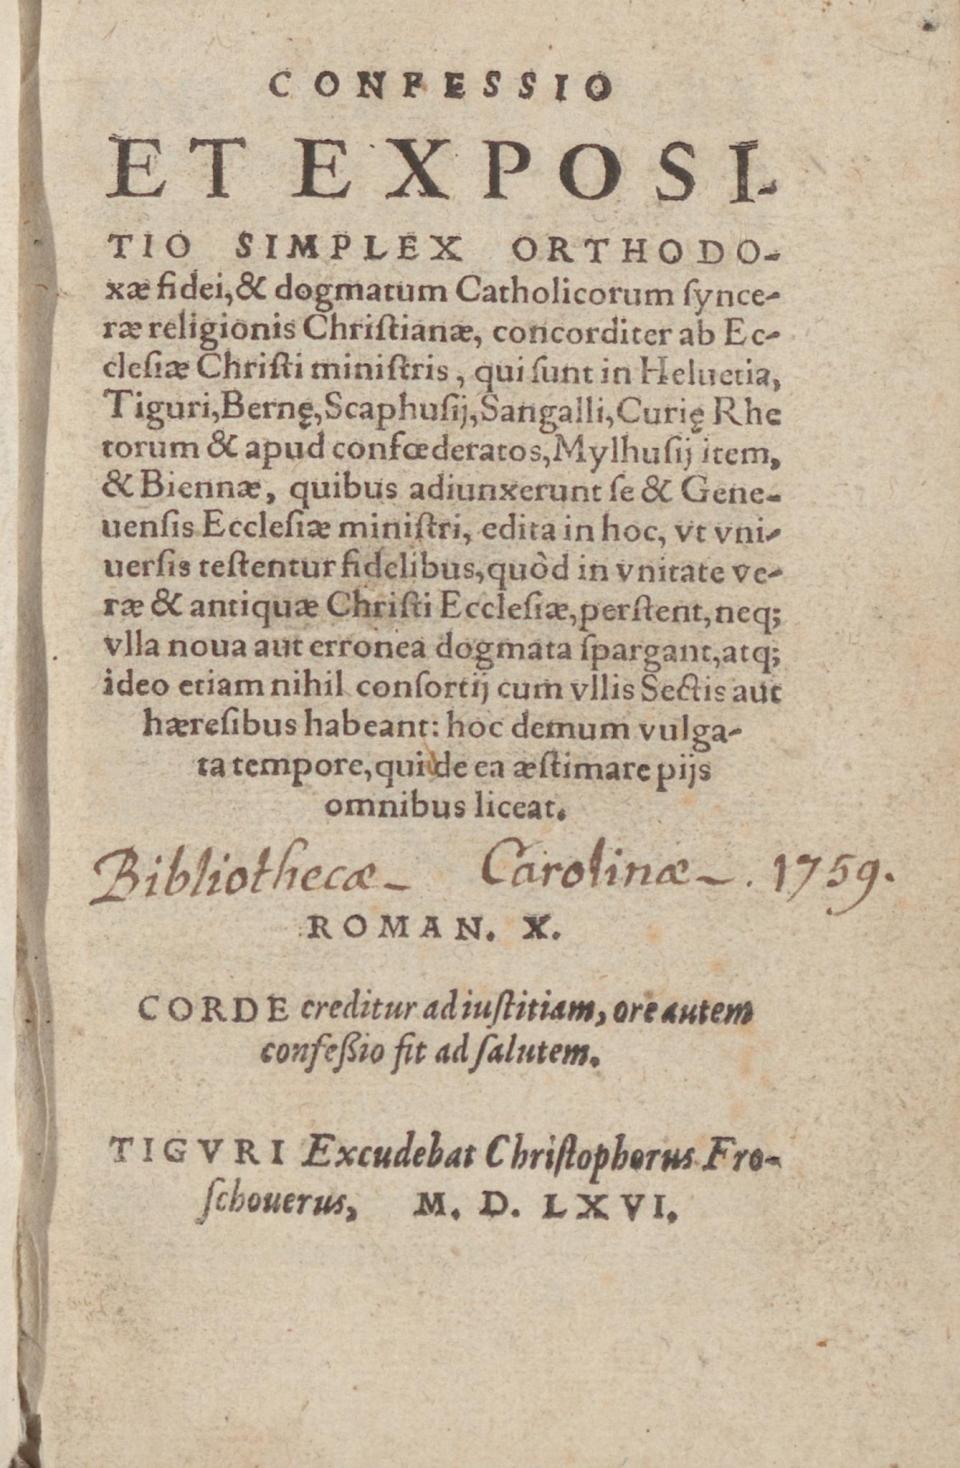 CONFESSIO
ET EXPOSI-
TIO SIMPLEX ORTHODO-
xæ fidei, & dogmatum Catholicorum ſynce-
ræ religionis Chriſtianæ, concorditer ab Ec-
cleſiæ Chriſti miniſtris, qui ſunt in Heluetia,
Tiguri, Bernę, Scaphuſij, Sangalli, Curię Rhe
torum & apud confœderatos, Mylhuſij item,
& Biennæ, quibus adiunxerunt ſe & Gene-
uenſis Eccleſiæ miniſtri, edita in hoc, vt vni-
uerſis teſtentur fidelibus, quòd in vnitate ve-
ræ & antiquæ Chriſti Eccleſiæ, perſtent, neq;
vlla noua aut erronea dogmata ſpargant, atq;
ideo etiam nihil conſortij cum vllis Sectis aut
hæreſibus habeant: hoc demum vulga-
ta tempore, quo de ea æſtimare pijs
omnibus liceat.
Bibliothecæ Carolinæ. 1759.
ROMAN. X.
CORDE creditur ad iuſtitiam, ore autem
confeßio fit ad ſalutem.
TIGVRI Excudebat Chriſtophorus Fro-
ſchouerus, M. D. LXVI.